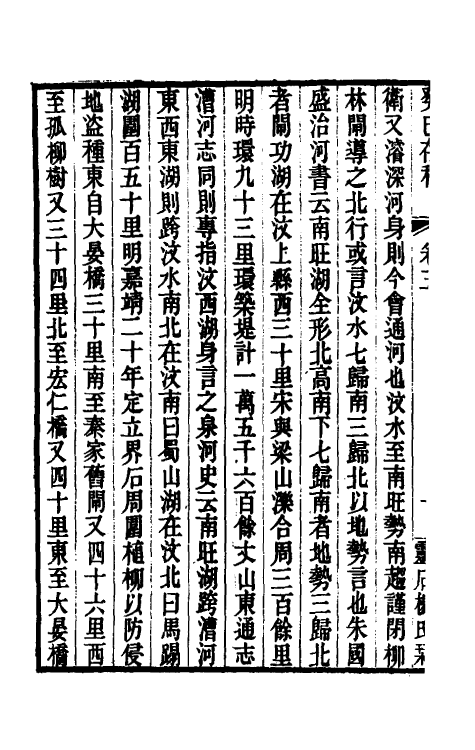 癸巳存稿
卷五
靈石楊氏栞
衛又濬深河身則今會通河也汶水至南旺勢南趨謹閉柳
林閘導之北行或言汶水七歸南三歸北以地勢言也朱國
盛治河書云南旺湖全形北高南下七歸南者地勢三歸北
者閘功湖在汶上縣西三十里宋與梁山濼合周三百餘里
明時環九十三里環築堤計一萬五千六百餘丈山東通志
漕河志同則專指汶西湖身言之泉河史云南旺湖跨漕河
東西東湖則跨汶水南北在汶南曰蜀山湖在汶北曰馬踢
湖圍百五十里明嘉靖二十年定立界石周圍植柳以防侵
地盜種東自大晏橋三十里南至秦家舊閘又四十六里西
至孤柳樹又三十四里北至宏仁橋又四十里東至大晏橋